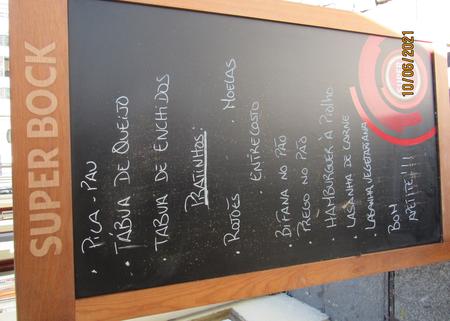 SUPER BOCK
· PICA-PAU
· TÁBUA DE QUEIJO
· TÁBUA DE ENCHIDOS
PRATINHOS:
· ROJÕES · MOELAS
· ENTRECOSTO
· BIFANA NO PÃO
· PREGO NO PÃO
· HAMBÚRGUER À PIOLHO
· LASANHA DE CARNE
· LASANHA VEGETARIANA
BOM
APETITE!!!
10/06/2021